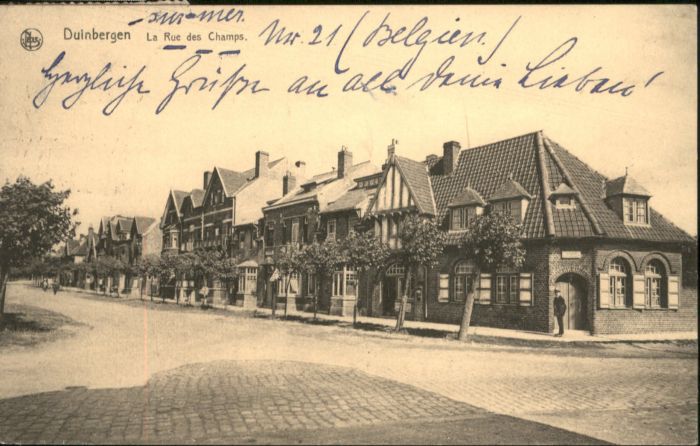 -sur-mer.
Duinbergen La Rue des Champs. Nr. 21 (Belgien.)
Herzliche Grüße an all deine Lieben!